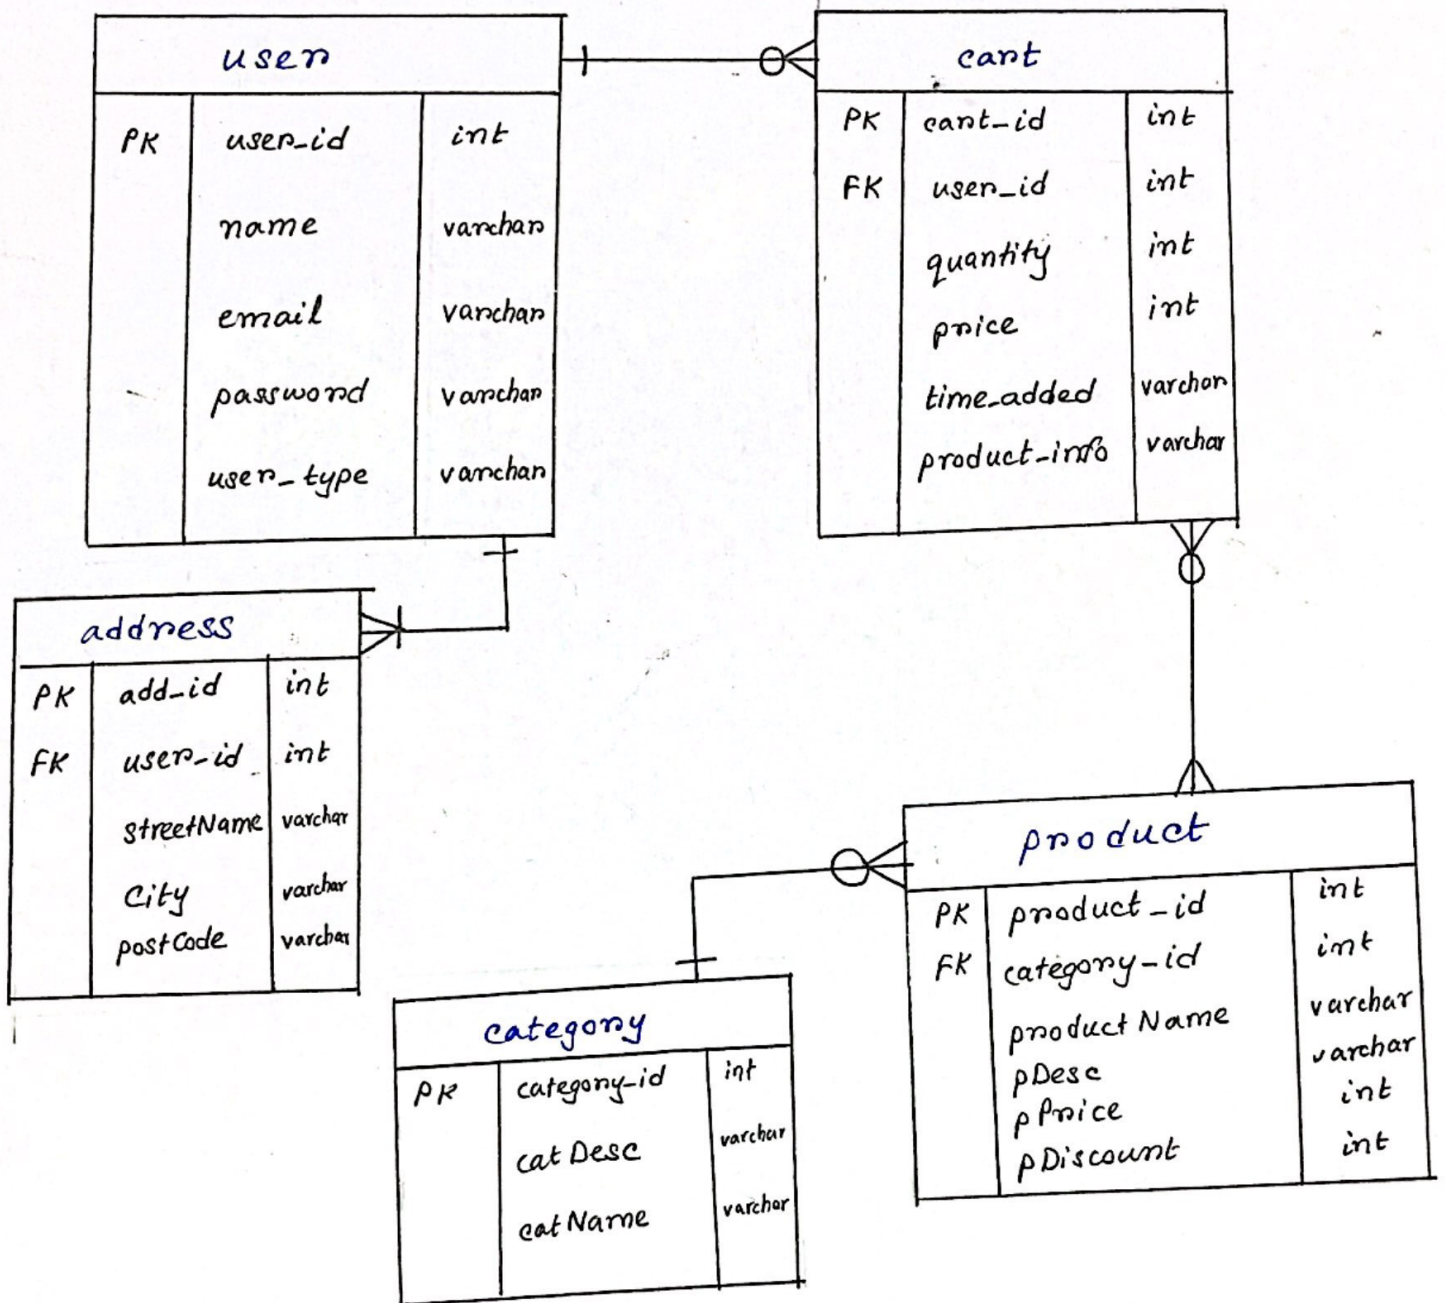 user
PK user_id int
name varchar
email varchar
password varchar
user_type varchar
cart
PK cart_id int
FK user_id int
quantity int
price int
time_added varchar
product_info varchar
address
PK add_id int
FK user_id int
streetName varchar
City varchar
postCode varchar
product
PK product_id int
FK category_id int
productName varchar
pDesc varchar
pPrice int
pDiscount int
category
PK category_id int
catDesc varchar
catName varchar